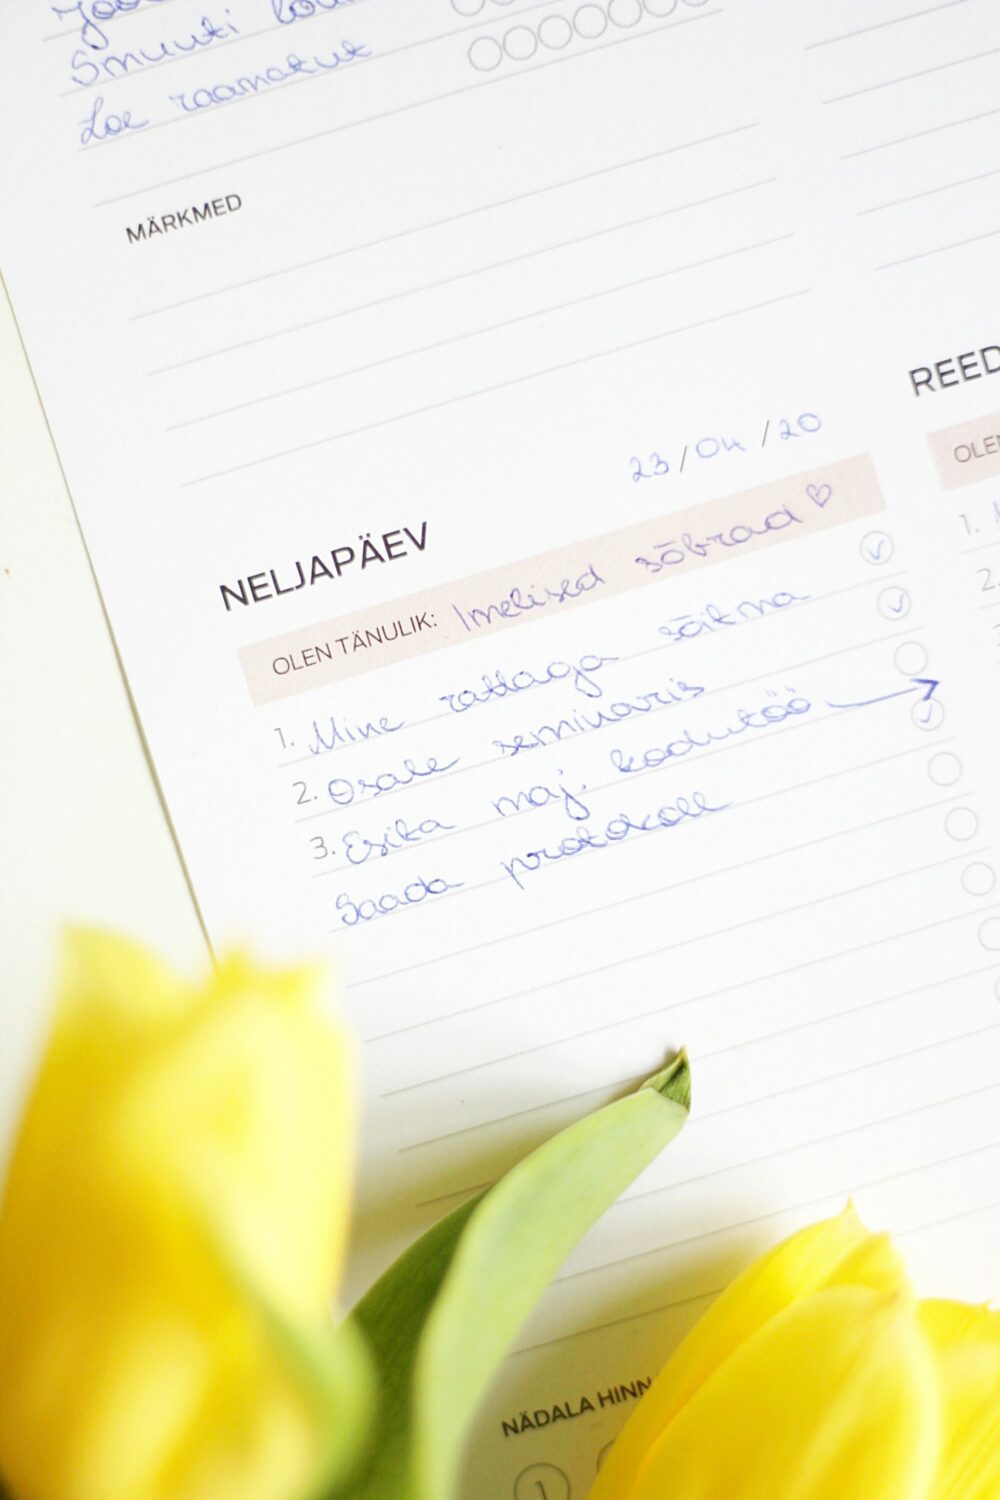 Smuuti
Loe raamatut
MÄRKMED
REED
23/04/20
NELJAPÄEV
OLEN TÄNULIK: Imelised sõbrad ♡
1. Mine rattaga sõitma
2. Osale seminaris
3. Esita maj. kodutöö →
Saada protokoll
OLEN
1.
2.
NÄDALA HINN
1